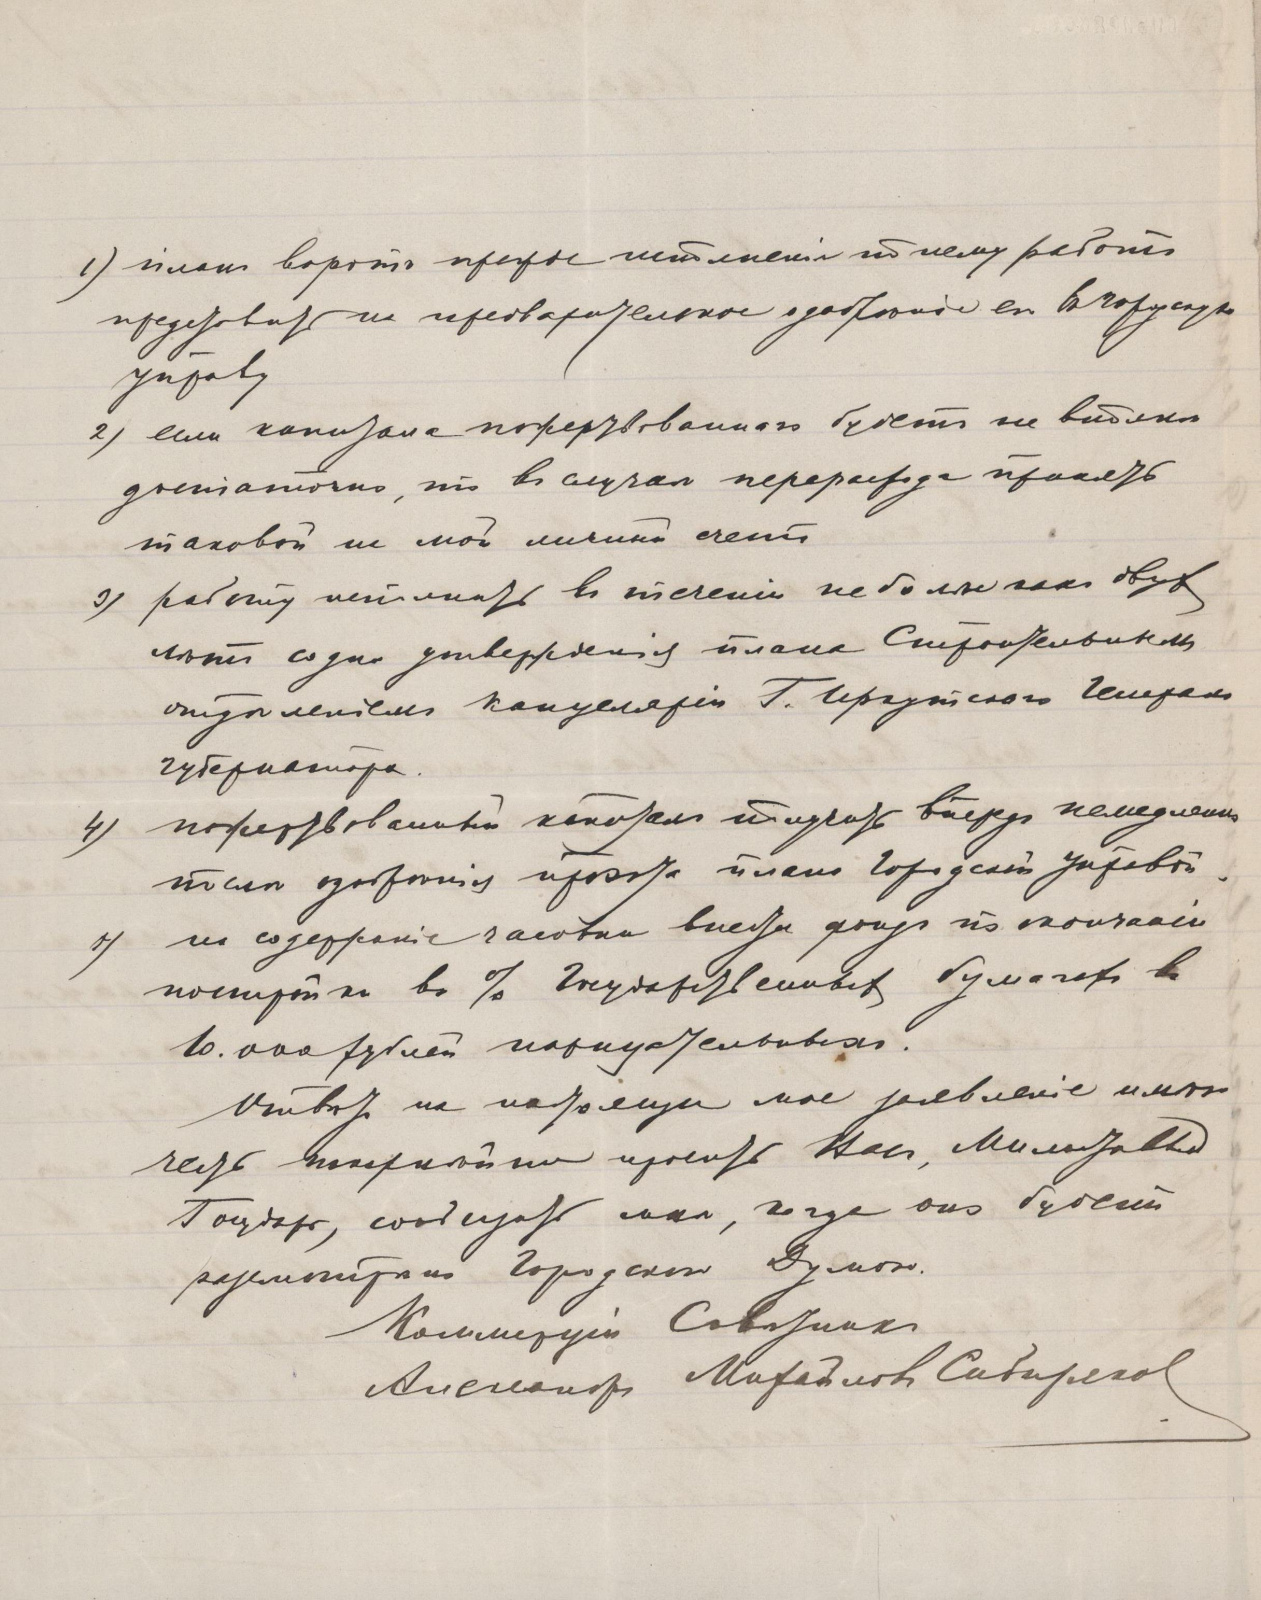 1) планъ воротъ прежде исполненія по нему работъ
представить на предварительное одобреніе въ Городскую
управу
2) если капитала пожертвованнаго будетъ не вполнѣ
достаточно, то въ случаѣ перерасхода принять
таковой на мой личный счетъ
3) работу исполнить въ теченіи не болѣе какъ двухъ
лѣтъ со дня утвержденія плана Строительнымъ
отдѣленіемъ Канцеляріи Г. Иркутскаго Генералъ
Губернатора.
4) пожертвованный капиталъ получить впередъ немедленно
послѣ одобренія проэкта плана Городской Управой.
5) на содержаніе часовни внести фондъ по окончаніи
постройки въ % Государственныхъ бумагахъ въ
10.000 рублей нарицательныхъ.
Отвѣтъ на настоящее мое заявленіе имѣю
честь покорнѣйше просить Васъ, Милостивый
Государь, сообщить мнѣ, когда оно будетъ
разсмотрѣно Городскою Думою.
Коммерціи Совѣтникъ
Александръ Михайловъ Сибиряковъ